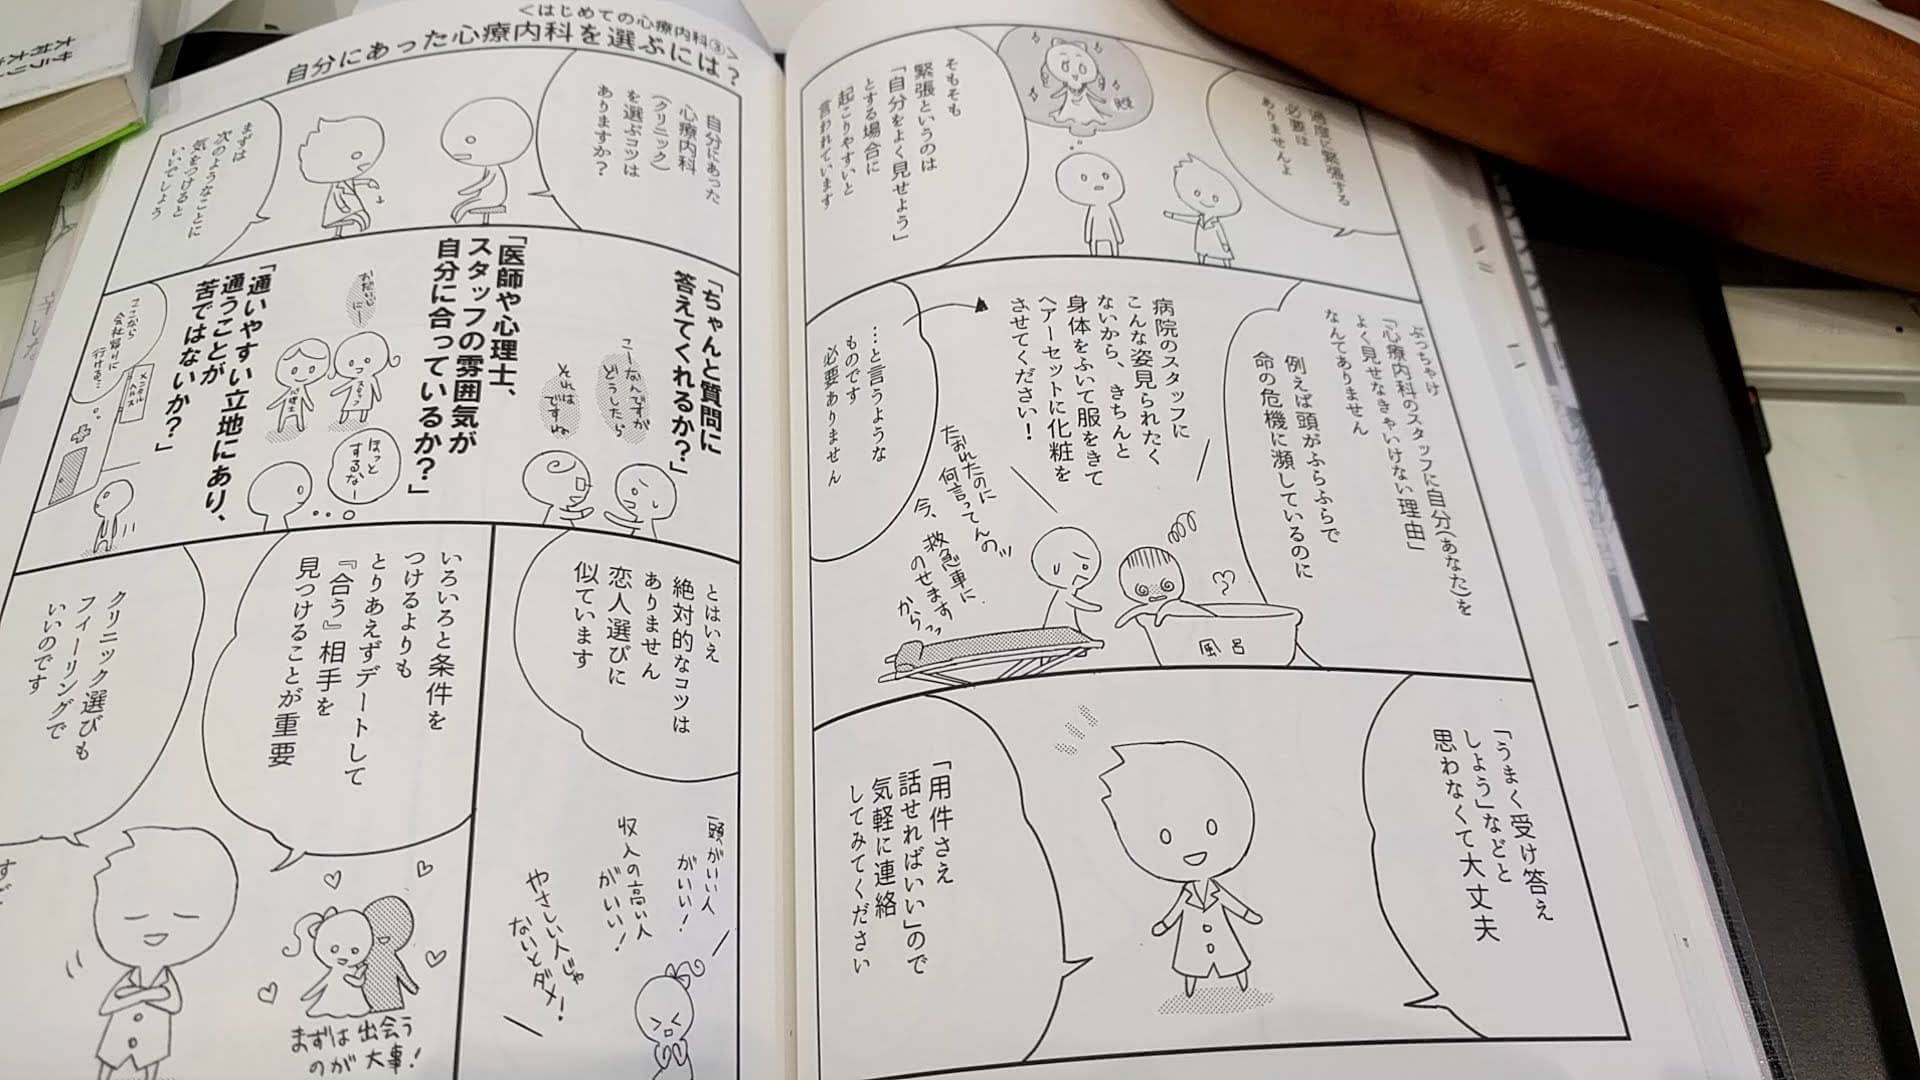 過度に緊張する
必要は
ありませんよ
そもそも
緊張というのは
「自分をよく見せよう」
とする場合に
起こりやすいと
言われています
ぶっちゃけ
「心療内科のスタッフに自分(あなた)を
よく見せなきゃいけない理由」
なんてありません
例えば頭がふらふらで
命の危機に瀕しているのに
病院のスタッフに
こんな姿見られたく
ないから、きちんと
身体をふいて服をきて
ヘアーセットに化粧を
させてください!
たおれたのに
何言ってんの
今、救急車に
のせます
から
風呂
…と言うような
ものです
必要ありません
「うまく受け答え
しよう」などと
思わなくて大丈夫
「用件さえ
話せればいい」ので
気軽に連絡
してみてください
<はじめての心療内科③>
自分にあった心療内科を選ぶには?
自分にあった
心療内科
(クリニック)
を選ぶコツは
ありますか?
まずは
次のようなことに
気をつけると
いいでしょう
「ちゃんと質問に
答えてくれるか?」
こーなんですが
どうしたら
それは
ですね
「医師や心理士、
スタッフの雰囲気が
自分に合っているか?」
おだいじ
にー
スタッフ
心理士
ほっと
するなー
「通いやすい立地にあり、
通うことが
苦ではないか?」
ここから
会社帰りに
行ける…
メンタル
ヘルス
とはいえ
絶対的なコツは
ありません
恋人選びに
似ています
頭がいい人
がいい!
収入の高い人
がいい!
やさしい人じゃ
ないとダメ!
いろいろと条件を
つけるよりも
とりあえずデートして
『合う』相手を
見つけることが重要
まずは出会う
のが大事!
クリニック選びも
フィーリングで
いいのです